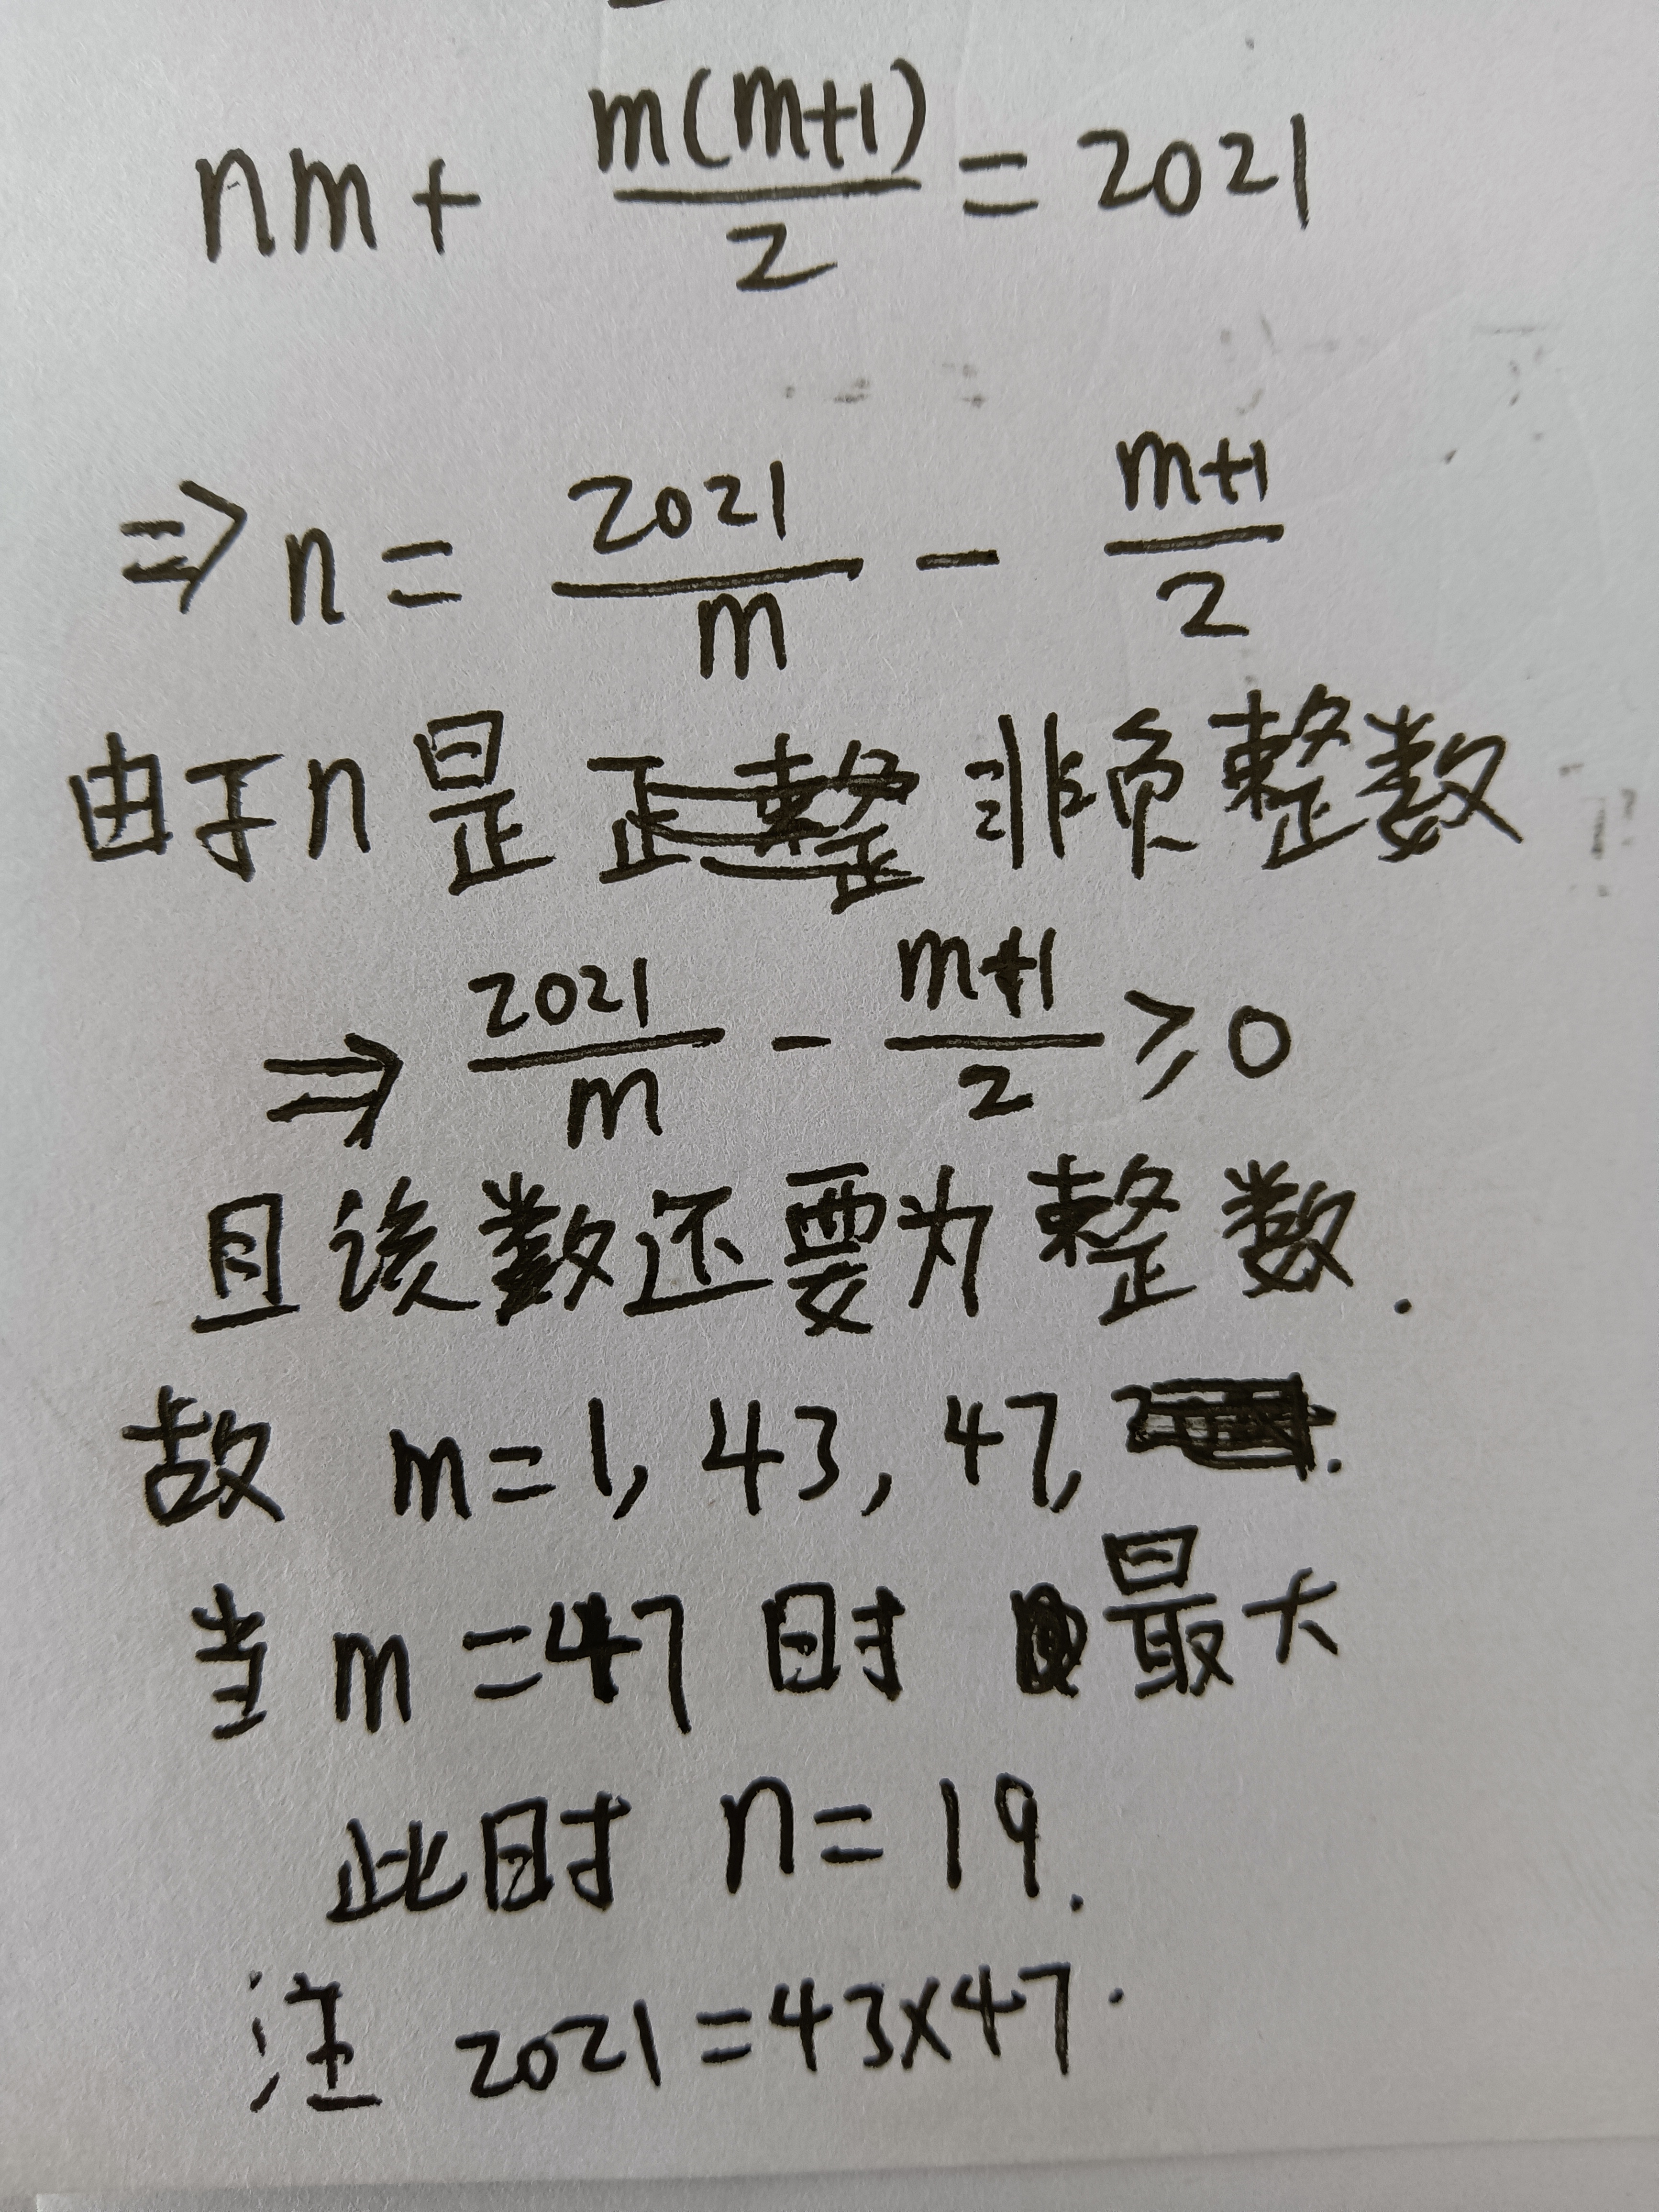 nm + m(m+1)/2 = 2021
⇒ n = 2021/m - (m+1)/2
由于n是 非负整数
⇒ 2021/m - (m+1)/2 ≥ 0
且该数还要为整数.
故 m=1, 43, 47, .
当 m=47 时 最大
此时 n=19.
注 2021=43×47.